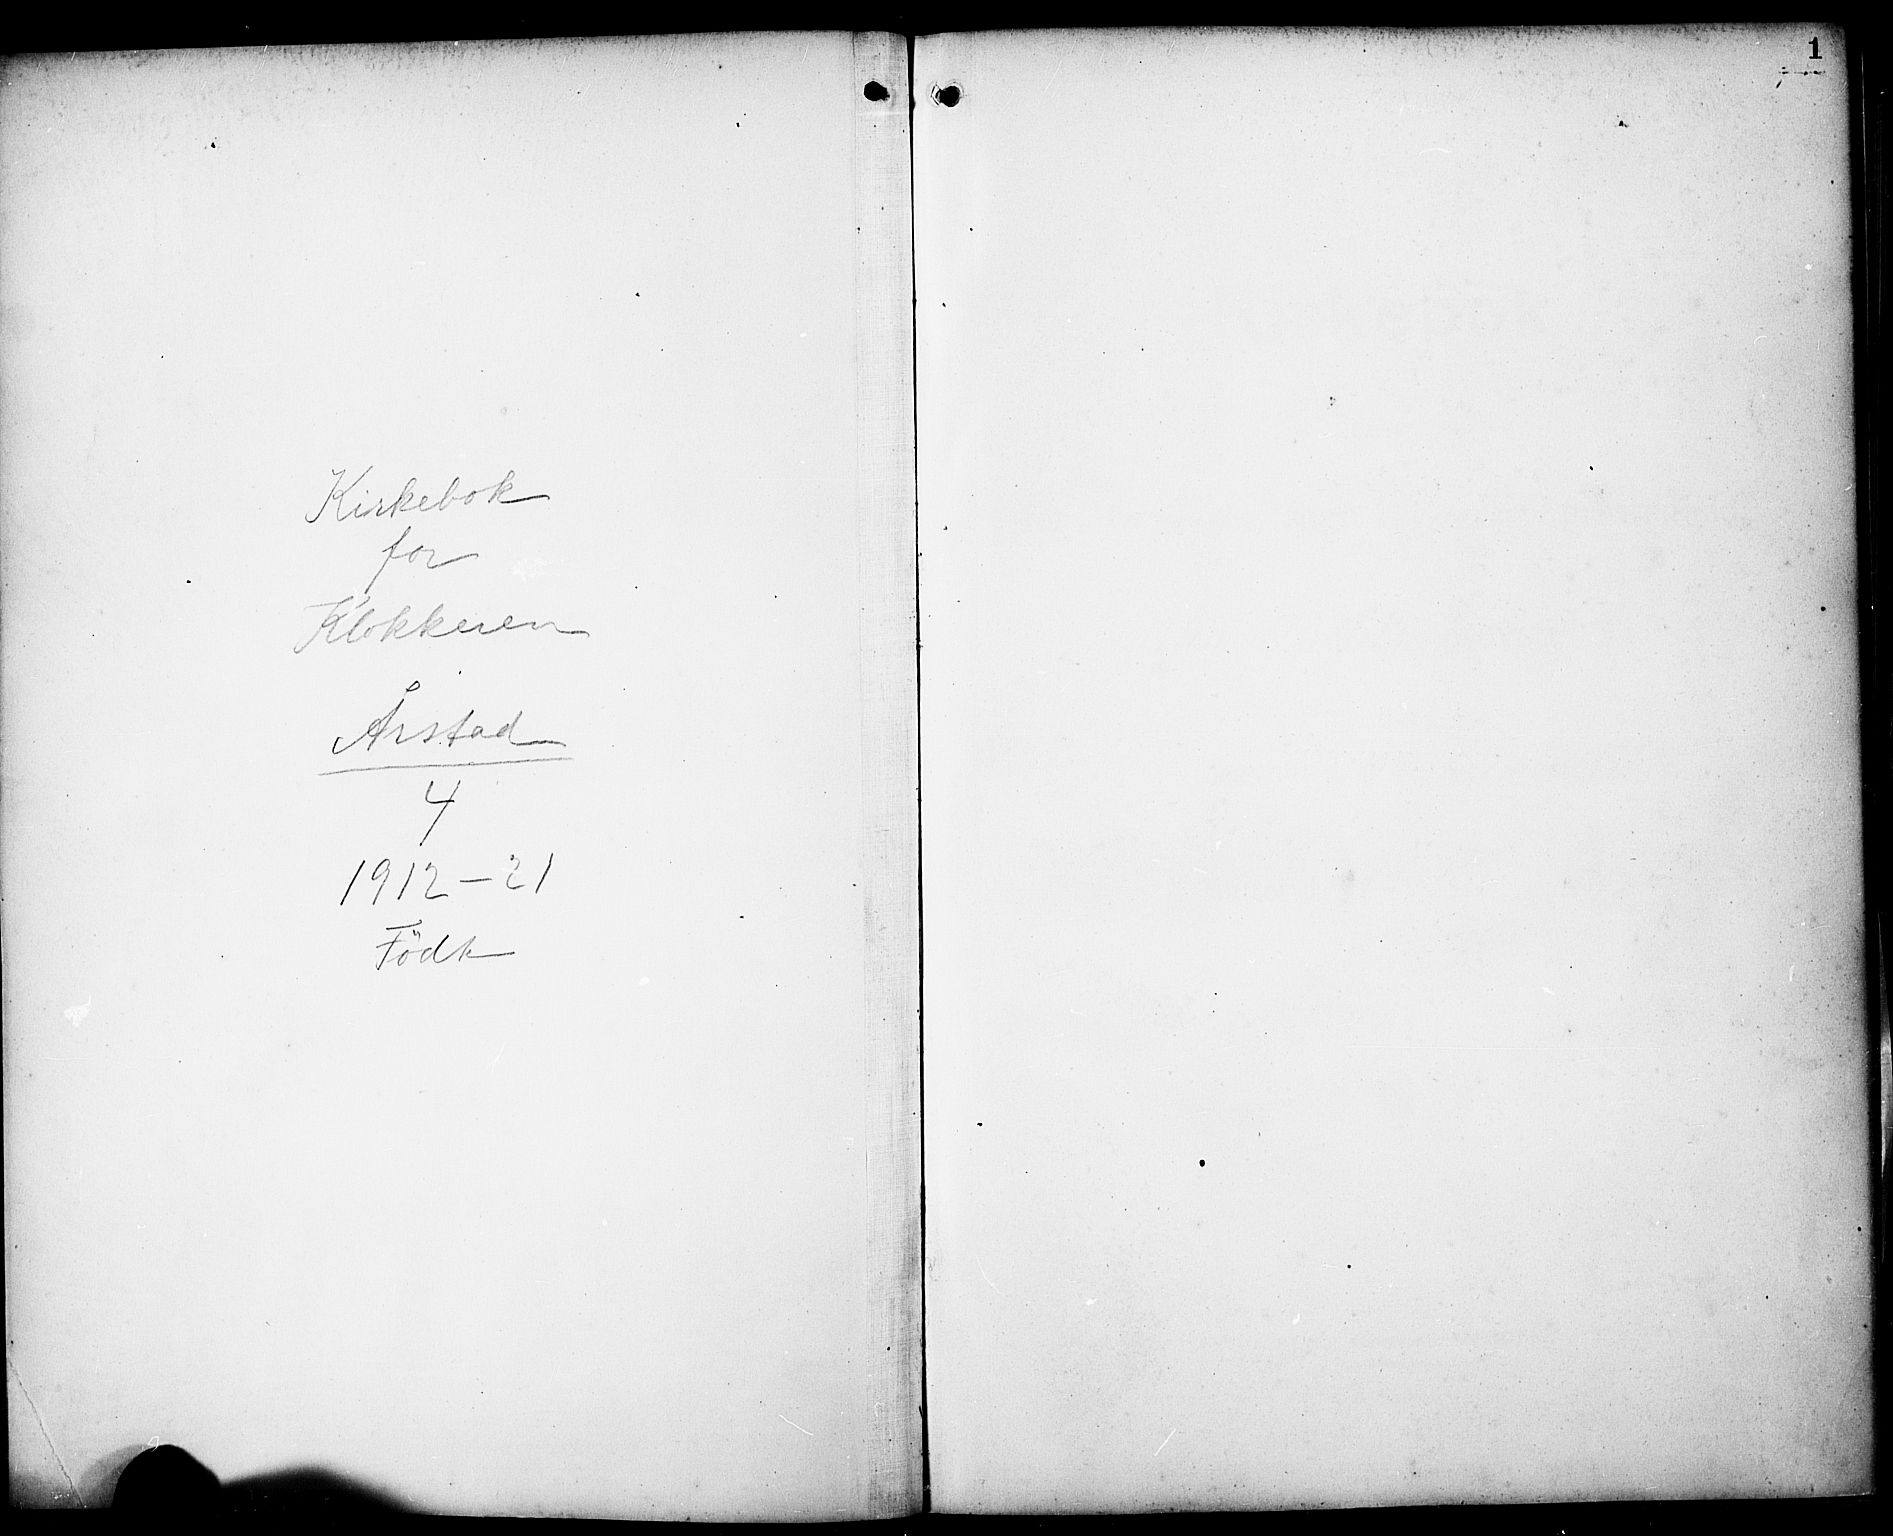 Kirkebok
for
Klokkeren
Årstad
4
1912-21
Födt
1